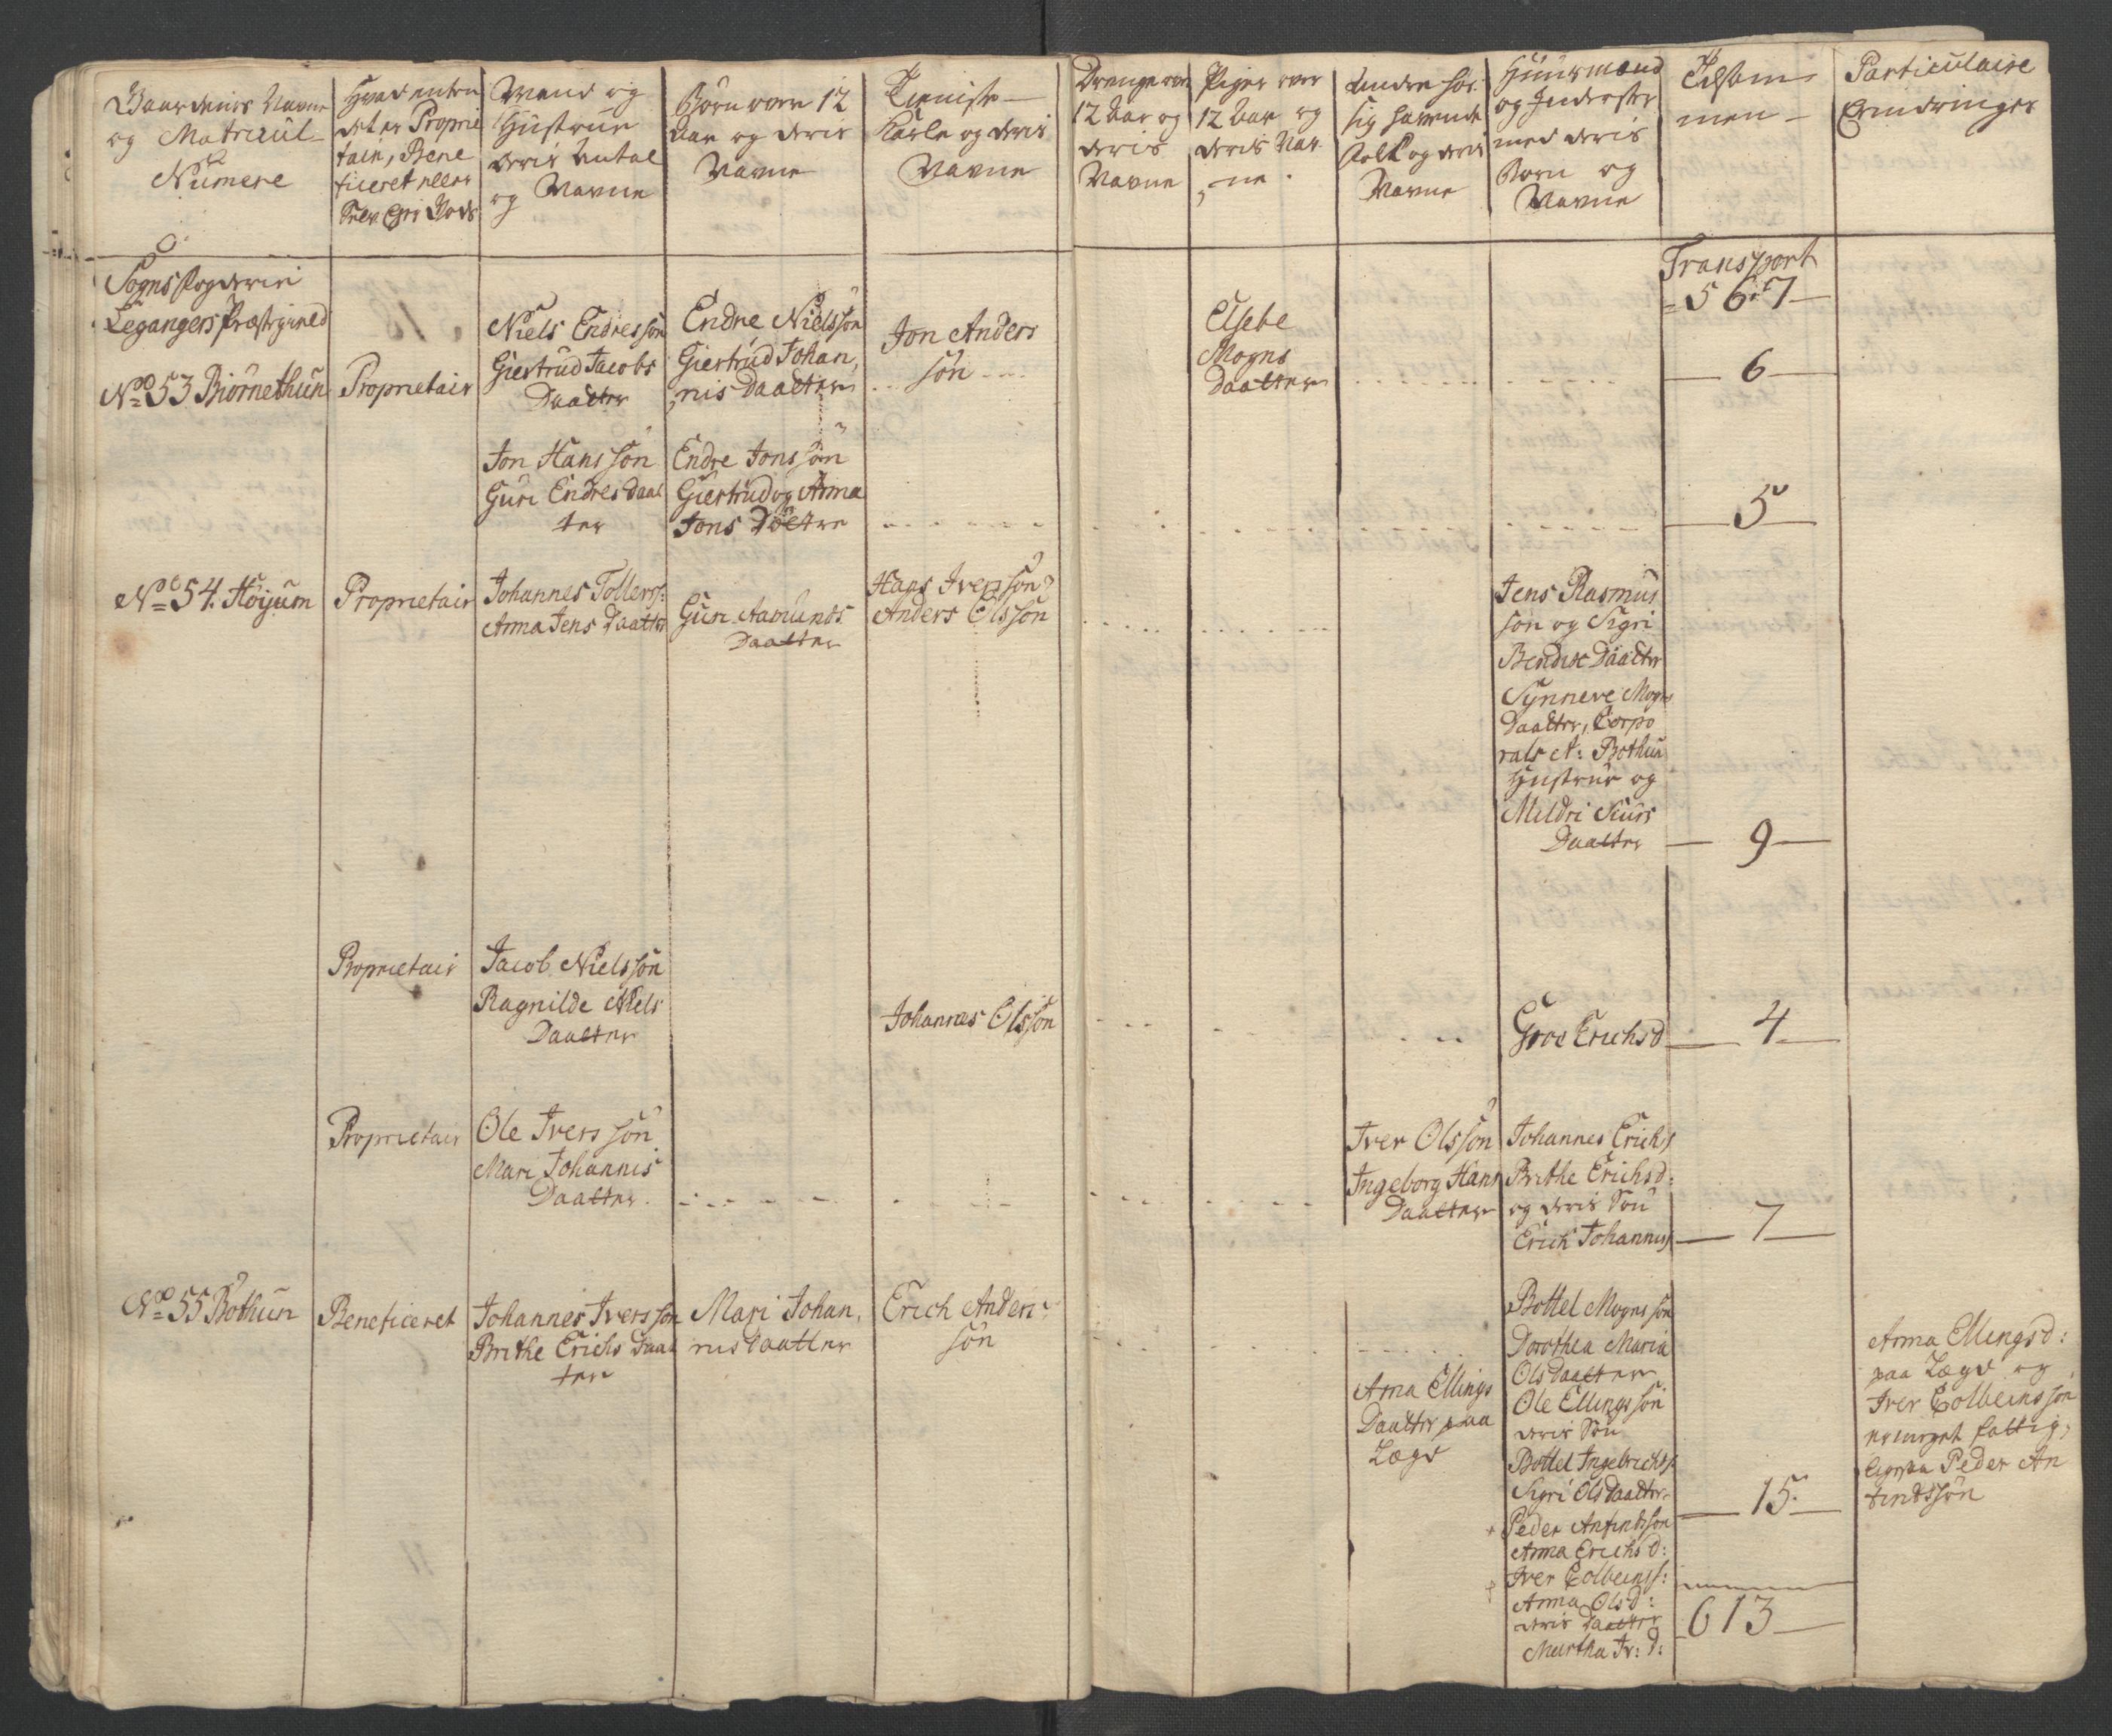 Gaardenis Navne
og Matricul
Numere
Hvad enten
det er Proprie
tair, Bene
ficeret eller
Mand og
Hustrue
deris Antal
og Navne
Børn over 12
Aar og deris
Navne
Tieniste
Karle og deris
Navne
Drenge over
12 Aar og
deris
Navne
Piger over
12 Aar og
deris Nav
ne
Andre hos
sig havende
Folk og deris
Navne
Huusmænd
og Inderster
med deris
Børn og
Navne
Tilsam
men
Particulaire
Erindringer
Sogns Fogderie
Leganger Præstegield
Transport
567
No 53 Biörnethun
Proprietair
Niels Endressön
Giertrud Jacobs
Daatter
Endre Nielssön
Giertrud Johan,
nis Daatter
Jon Anders
sön
Elsebe
Mogns
Daatter
6
Jon Hans sön
Guri Endres Daat
ter
Endre Jons sön
Giertrud og Anna
Jons Döttre
5
No 54. Höyum
Proprietair
Johannes Tollerss:
Anna Jens Daatter
Guri Aamunds
Daatter
Hans Iverssön
Anders Olssön
Jens Rasmus
sön og Sigri
Bendix Daatter
Synneve Mogns
Daatter, Corpo
rals A: Bothun
Hustrue og
Mildri Siurs
Daatter
9
Proprietair
Jacob Nielssön
Ragnilde Niels
Daatter
Johannes Olssön
Groe Erichsd
4
Proprietair
Ole Ivers sön
Mari Johannis
Daatter
Iver Olssön
Ingeborg Hans
Daatter
Johannes Erichs
Brithe Erichsd:
og deris Sön
Erich Johanniss
7
No 55 Bothun
Beneficeret
Johannes Iverssön
Brithe Erichs Daat
ter
Mari Johan,
nis Daatter
Erich Anders
sön
Anna Ellings
Daatter paa
Lægd
Bottel Mognssön
Dorothea Maria
Olsdaatter
Ole Ellingssön
deris Sön
Bottel Ingebrichtss
Sigri Olsdaatter
Peder Anfindssön
Anna Erichsd:
Iver Colbeinss:
Anna Olsd:
deris Daatter
Martha Iv: D:
15
Anna Ellingsd:
paa Lægd og
Iver Colbeinssön
meget fattig,
ligesaa Peder An
findssön
613